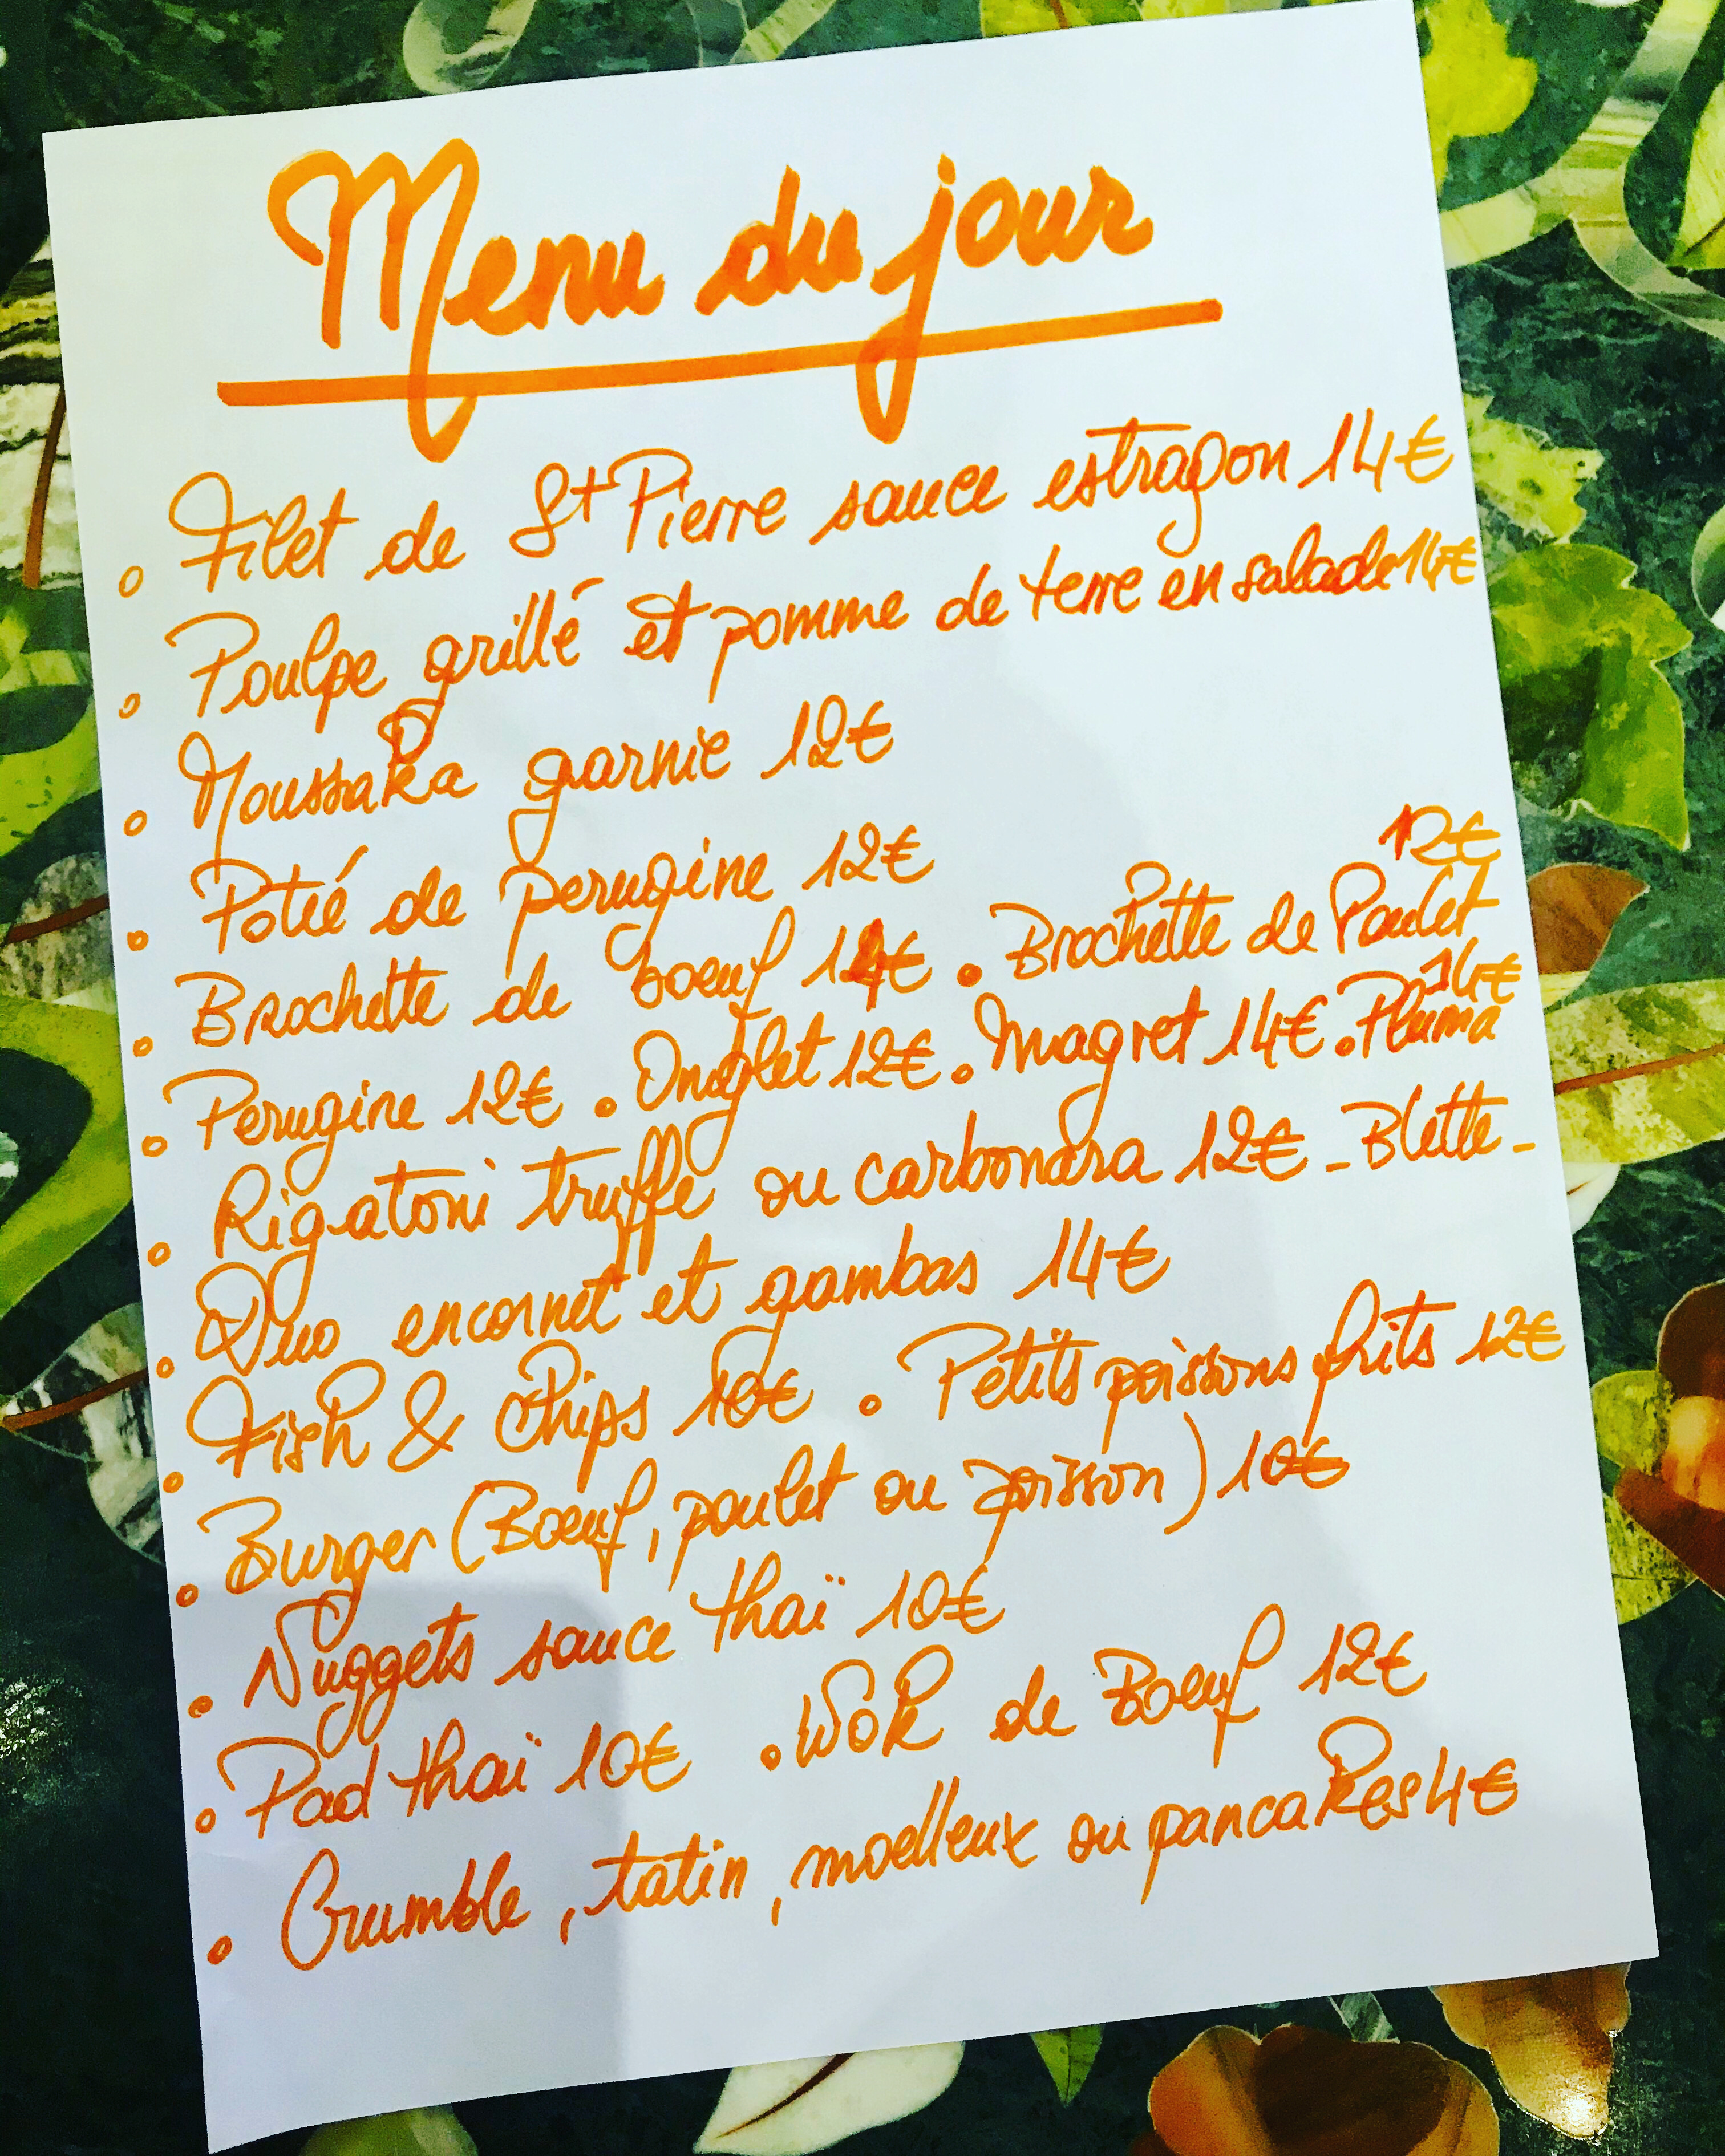 Menu du jour
• Filet de St Pierre sauce estragon 14€
• Poulpe grillé et pomme de terre en salade 14€
• Moussaka garnie 12€
• Potié de perugine 12€
• Brochette de boeuf 14€ • Brochette de Poulet 12€
• Perugine 12€ • Onglet 12€ • Magret 14€ • Pluma 14€
• Rigatoni truffe ou carbonara 12€ - Blette -
• Duo encornet et gambas 14€
• Fish & Chips 10€ • Petits poissons frits 12€
• Burger (Boeuf, poulet ou poisson) 10€
• Nuggets sauce thaï 10€
• Pad thaï 10€ • Wok de Boeuf 12€
• Crumble, tatin, moelleux ou pancakes 4€